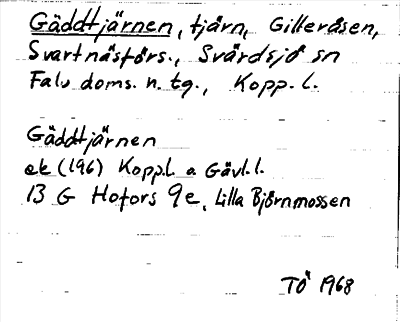 Gäddtjärnen, tjärn, Gilleråsen,
Svartnäsförs., Svärdsjö sn
Falu doms. n. tg., Kopp. l.
Gäddtjärnen
ek (196) Kopp.l. o Gävl.l.
13 G Hofors 9e, Lilla Björnmossen
TÖ 1968